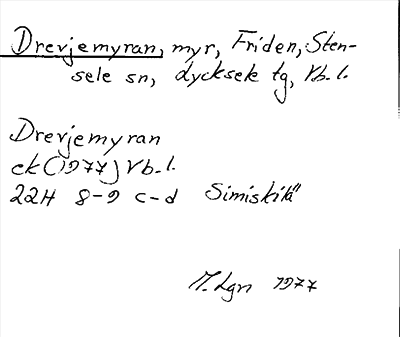 Drevjemyran, myr, Friden, Sten-
sele sn, Lycksele tg, Vb. l.
Drevjemyran
ek (1977) Vb. l.
22H 8-9 c-d Simiskilä
M. Lgn 1977